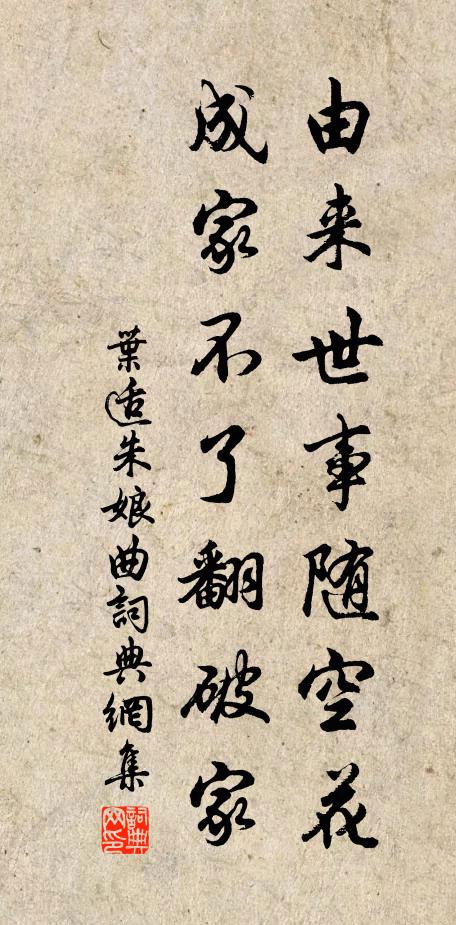 由来世事随空花
成家不了翻破家
葉适朱娘曲詞典網集
詞典網印